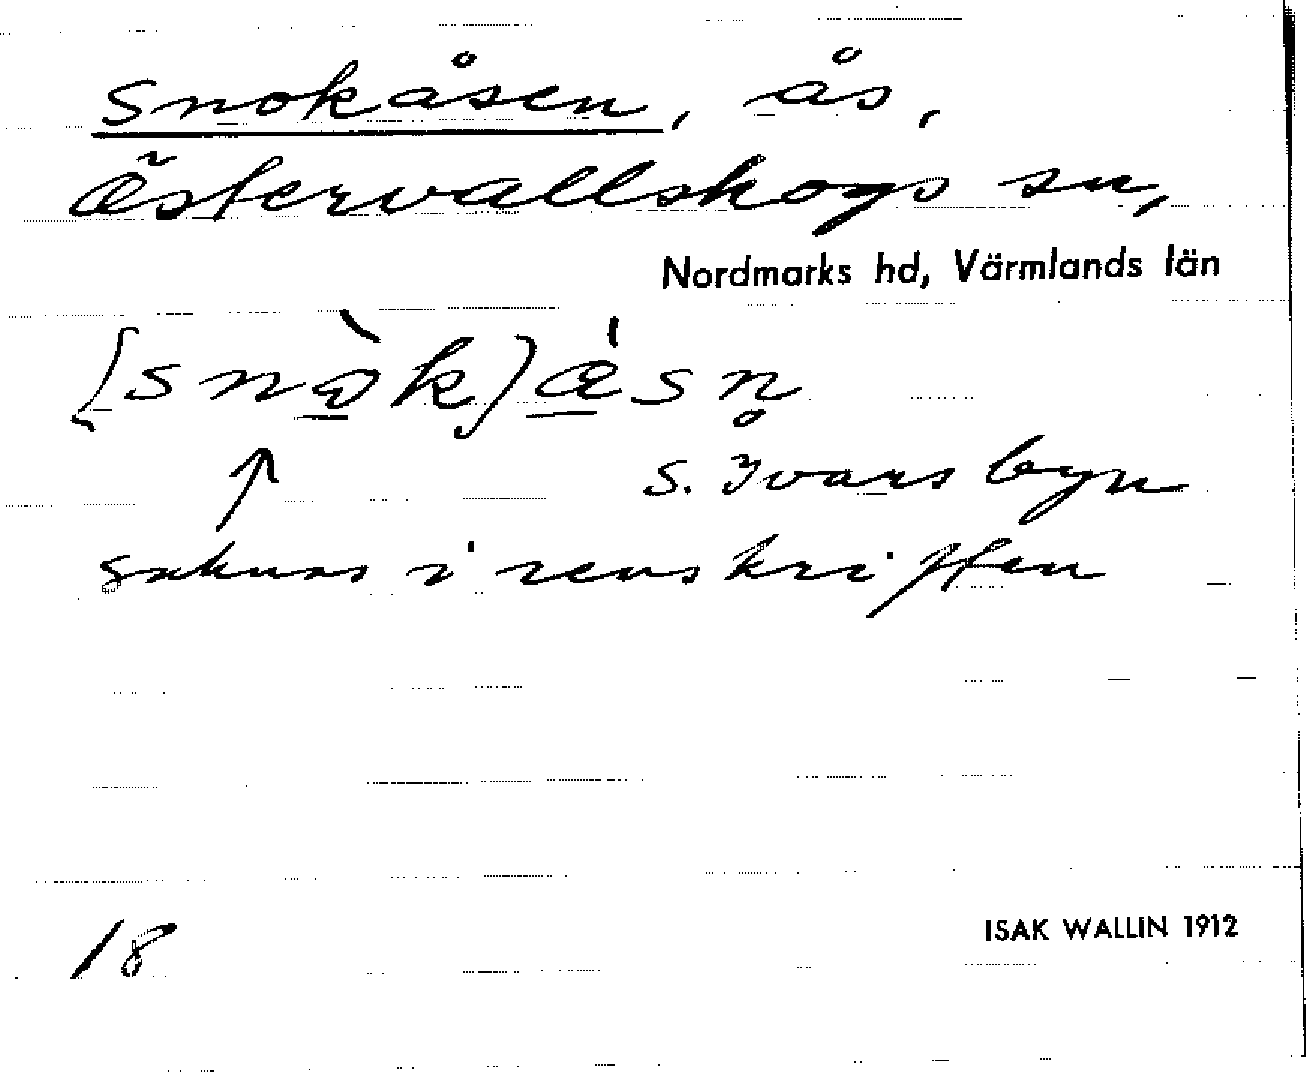 Snokåsen, ås,
Östervallskogs sn,
Nordmarks hd, Värmlands län
[snòk)ǽsn̥
S. Ivarsbyn
↑
saknas i renskriften
18
ISAK WALLIN 1912